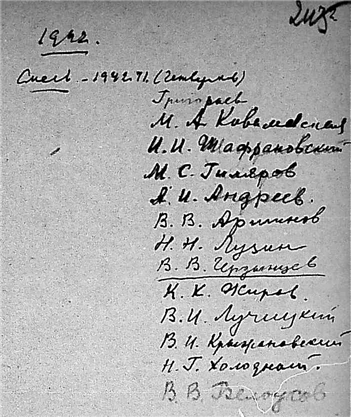 1942.
Смель - 1942.VI. (Четверг)
Григорьев
М. А. Ковальская
И. И. Шафрановский
М. С. Гиляров
А. И. Андреев.
В. В. Аршинов
Н. Н. Лузин
К. К. Жиров.
В. И. Лучицкий
В. И. Крыжановский
Н. Г. Холодный.
В. В. Белоусов